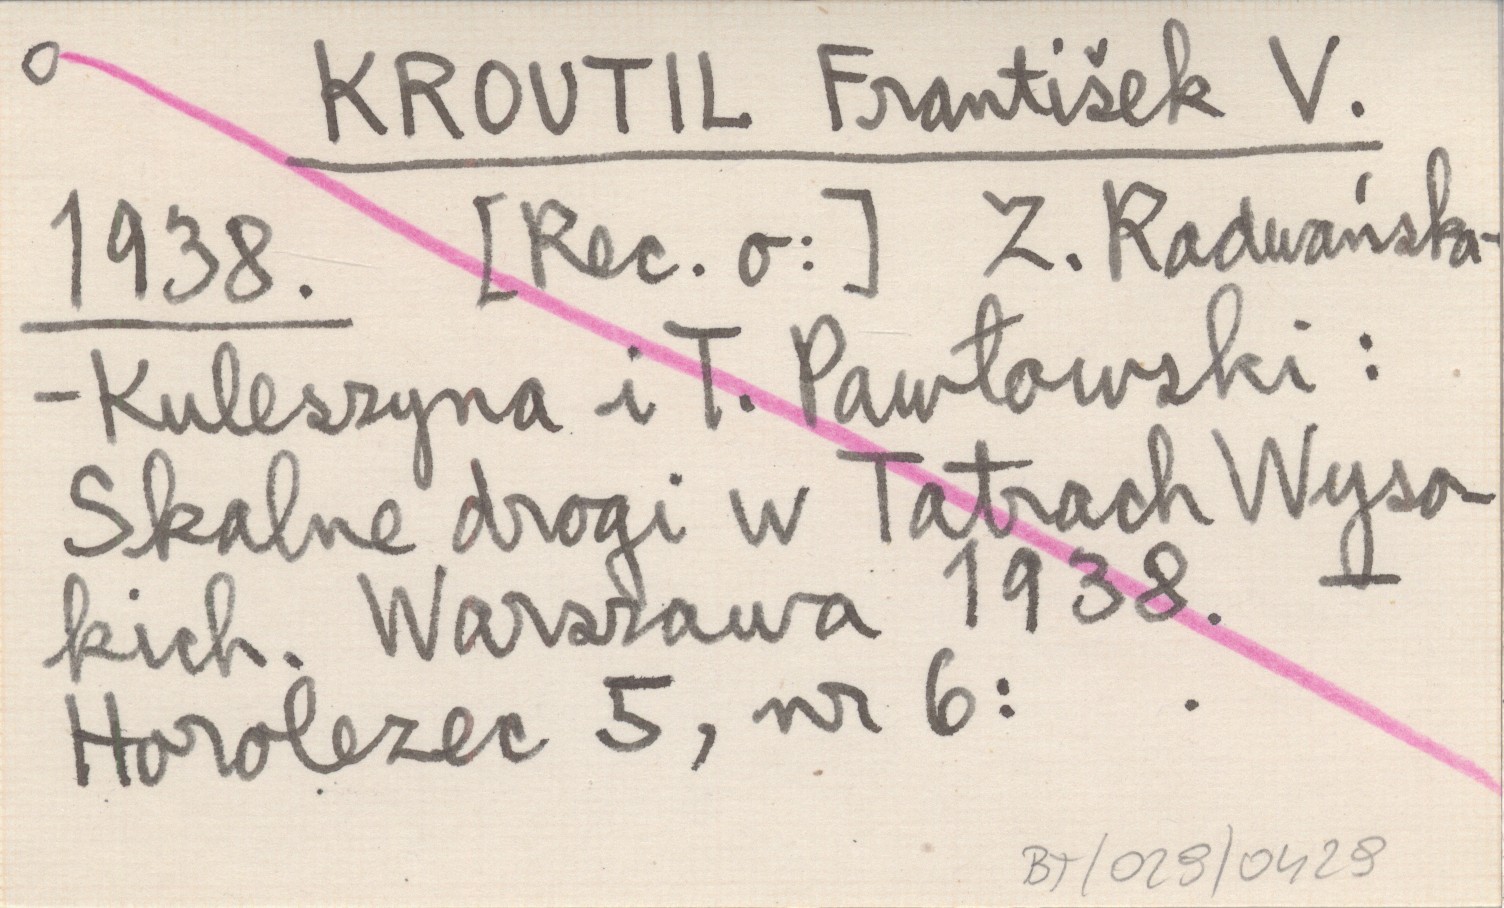 KROUTIL František V.
1938. [Rec. o:] Z. Radwańska-
-Kuleszyna i T. Pawłowski:
Skalne drogi w Tatrach Wyso-
kich. Warszawa 1938.
Horolezec 5, nr 6: .
BT/029/0429